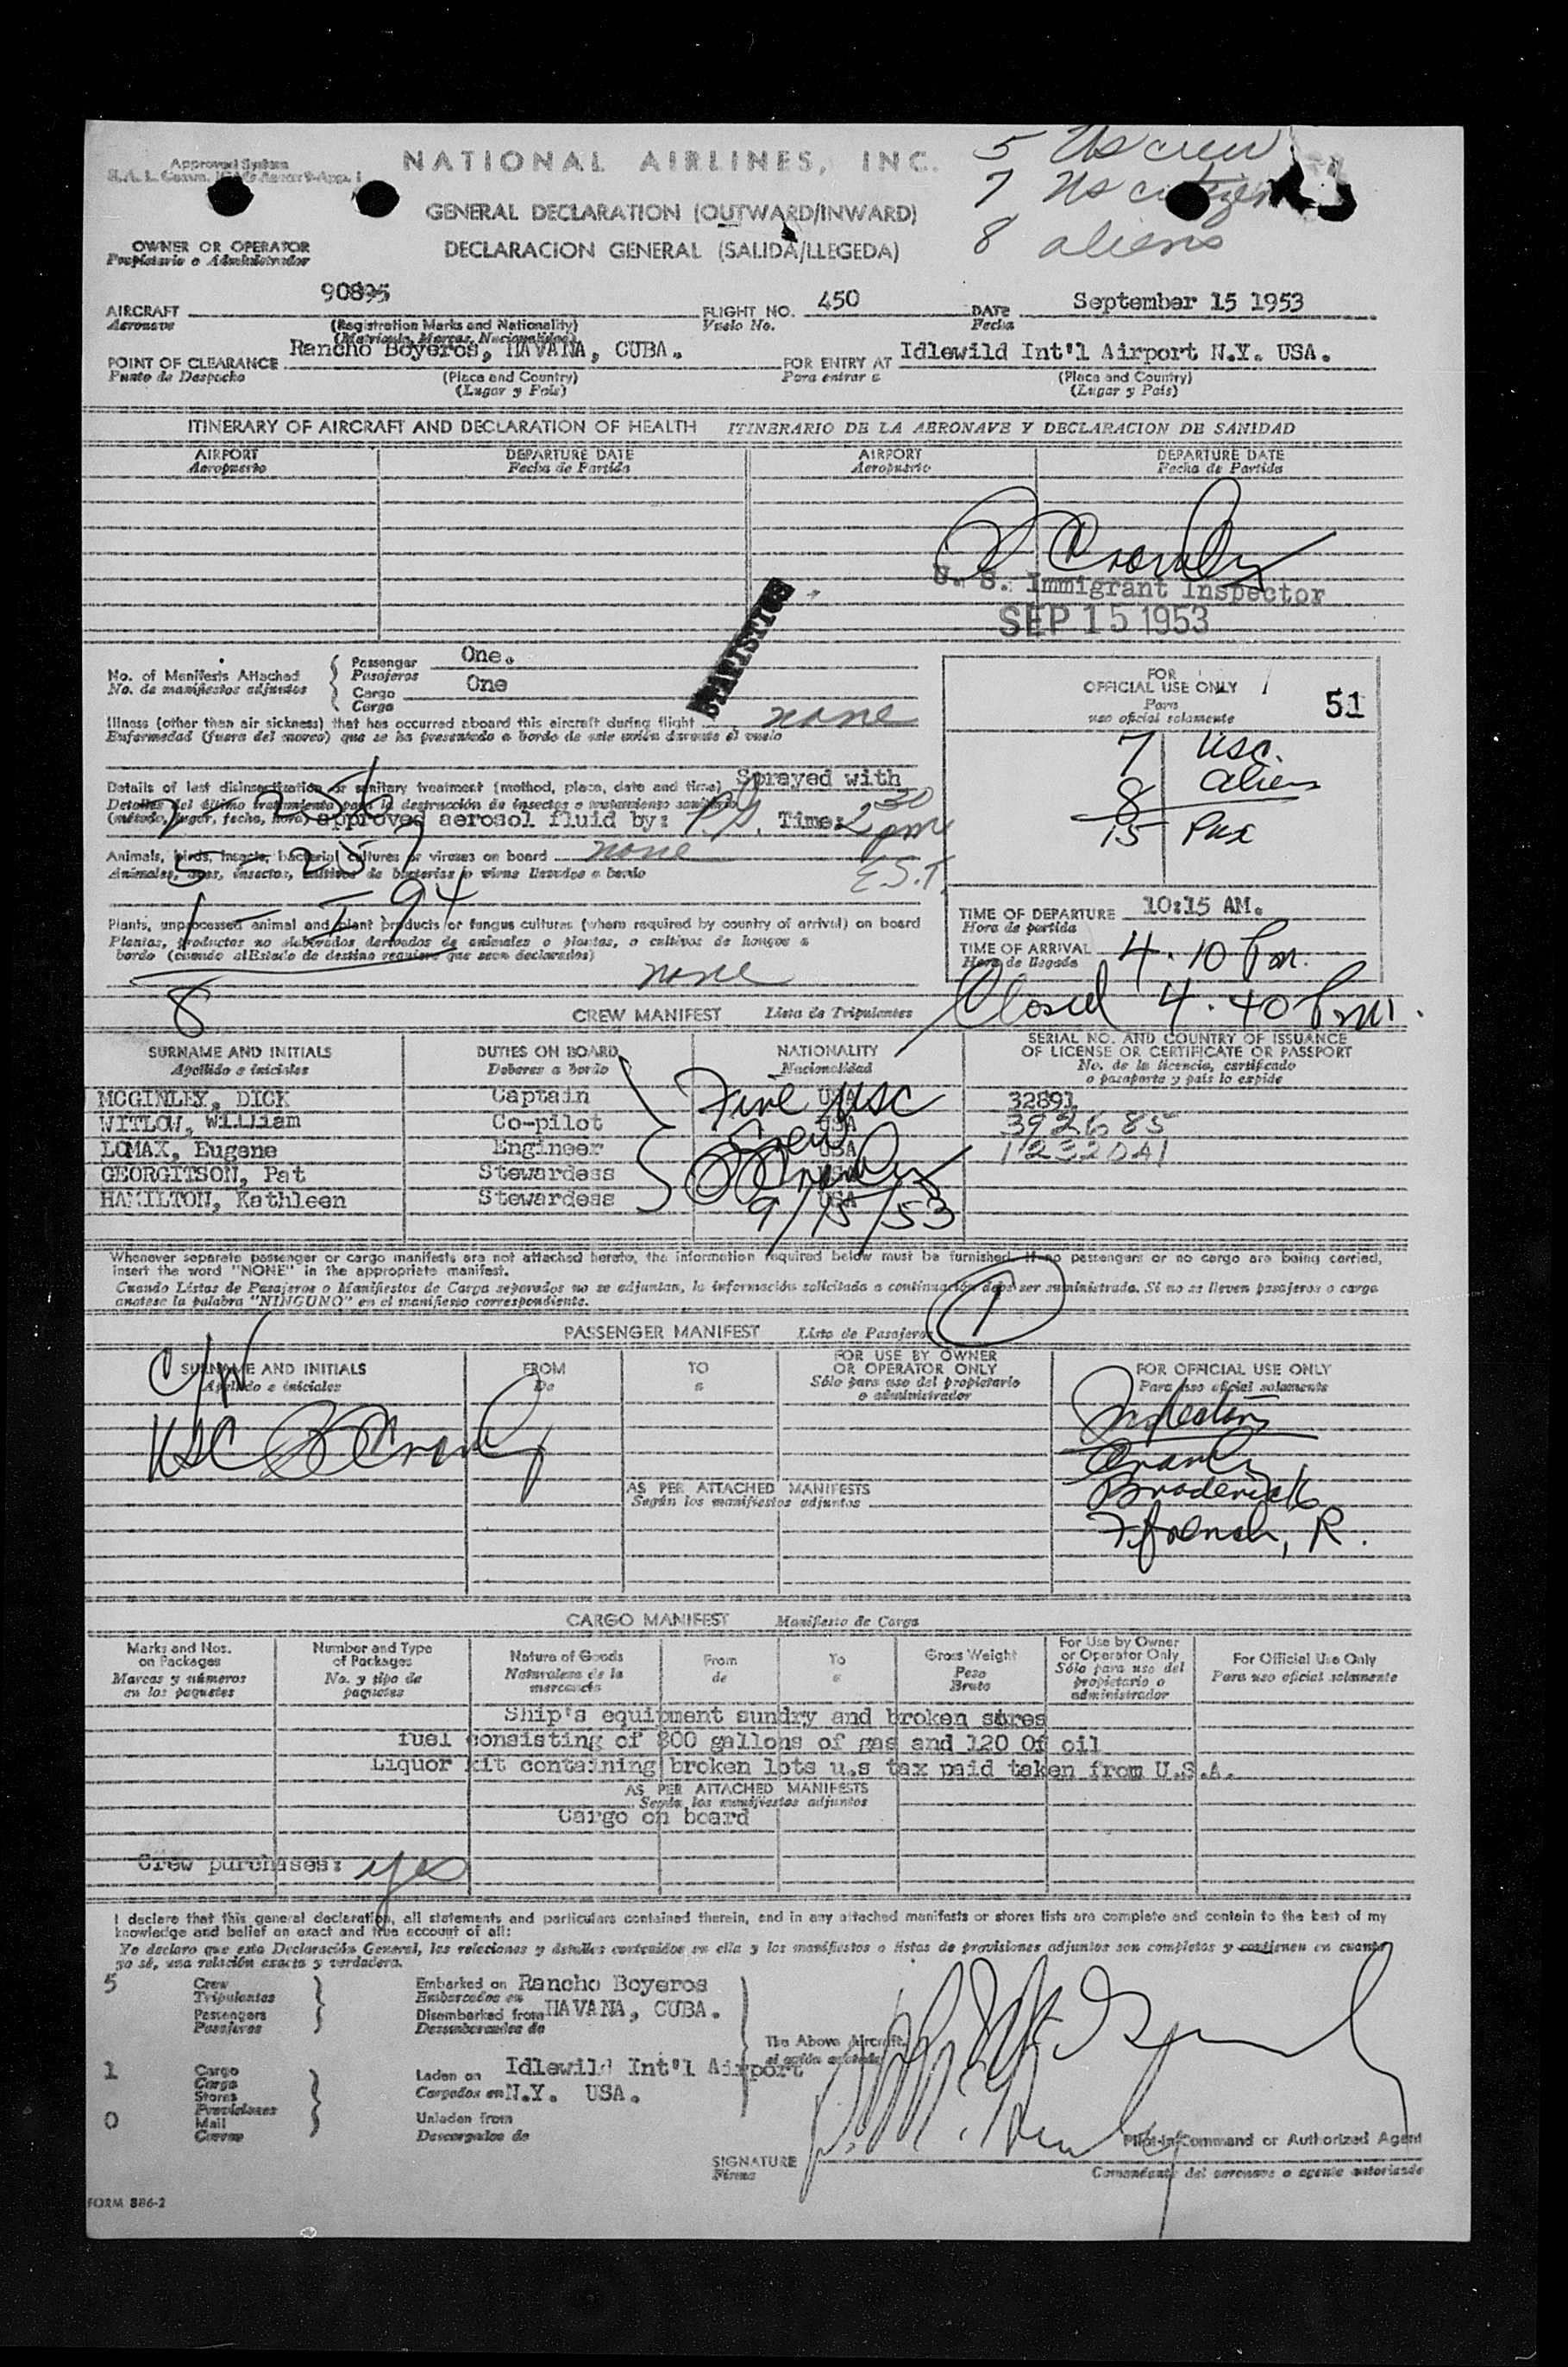 Approved System
NATIONAL AIRLINES, INC.
5 US crew
7 US citizens
8 aliens
GENERAL DECLARATION (OUTWARD/INWARD)
DECLARACION GENERAL (SALIDA/LLEGEDA)
OWNER OR OPERATOR
Propietario o Administrador
AIRCRAFT 90895 FLIGHT NO. 450 DATE September 15 1953
Aeronave (Registration Marks and Nationality) Vuelo No. Fecha
(Matricula, Marcas, Nacionalidad)
POINT OF CLEARANCE Rancho Boyeros, HAVANA, CUBA. FOR ENTRY AT Idlewild Int'l Airport N.Y. USA.
Punto de Despacho (Place and Country) Para entrar a (Place and Country)
(Lugar y Pais) (Lugar y Pais)
ITINERARY OF AIRCRAFT AND DECLARATION OF HEALTH ITINERARIO DE LA AERONAVE Y DECLARACION DE SANIDAD
AIRPORT DEPARTURE DATE AIRPORT DEPARTURE DATE
Aeropuerto Fecha de Partida Aeropuerto Fecha de Partida
U. S. Immigrant Inspector
SEP 15 1953
STATISTICS
No. of Manifests Attached Passenger One.
No. de manifiestos adjuntos Pasajeros
Cargo One
Carga
Illness (other than air sickness) that has occurred aboard this aircraft during flight none
Enfermedad (fuera del mareo) que se ha presentado a bordo de este avión durante el vuelo
FOR
OFFICIAL USE ONLY 51
Para
uso oficial solamente
7 USC.
8 aliens
15 Pax
Details of last disinsectization or sanitary treatment (method, place, date and time) Sprayed with
Detalles del último tratamiento para la destrucción de insectos o tratamiento sanitario
(método, lugar, fecha, hora) approved aerosol fluid by: Time: 2 30 pm
E.S.T.
Animals, birds, insects, bacterial cultures or viruses on board none
Animales, aves, insectos, cultivos de bacterias o virus llevados a bordo
Plants, unprocessed animal and plant products or fungus cultures (where required by country of arrival) on board
Plantas, productos no elaborados derivados de animales o plantas, o cultivos de hongos a
bordo (cuando al Estado de destino requiere que sean declarados)
none
8
TIME OF DEPARTURE 10:15 AM.
Hora de partida
TIME OF ARRIVAL 4.10 Pm.
Hora de llegada
Closed 4.40 Pm.
CREW MANIFEST Lista de Tripulantes
SURNAME AND INITIALS DUTIES ON BOARD NATIONALITY SERIAL NO. AND COUNTRY OF ISSUANCE
Apellido e iniciales Deberes a bordo Nacionalidad OF LICENSE OR CERTIFICATE OR PASSPORT
No. de la licencia, certificado
o pasaporte y pais lo expide
MCGINLEY, DICK Captain USA 32891
WITLOW, William Co-pilot USA 392685
LOMAX, Eugene Engineer USA 1232041
GEORGITSON, Pat Stewardess USA
HAMILTON, Kathleen Stewardess USA
Five USC
Crew
9/15/53
Whenever separate passenger or cargo manifests are not attached hereto, the information required below must be furnished. If no passengers or no cargo are being carried,
insert the word "NONE" in the appropriate manifest.
Cuando Listas de Pasajeros o Manifiestos de Carga separados no se adjuntan, la información solicitada a continuación debe ser suministrada. Si no se lleven pasajeros o carga
anotese la palabra "NINGUNO" en el manifiesto correspondiente.
1
PASSENGER MANIFEST Lista de Pasajeros
SURNAME AND INITIALS FROM TO FOR USE BY OWNER FOR OFFICIAL USE ONLY
Apellido e iniciales De a OR OPERATOR ONLY Para uso oficial solamente
Sólo para uso del propietario
o administrador
USC
Inspectors
Broderick
AS PER ATTACHED MANIFESTS
Según los manifiestos adjuntos
CARGO MANIFEST Manifiesto de Carga
Marks and Nos. Number and Type Nature of Goods From To Gross Weight For Use by Owner For Official Use Only
on Packages of Packages Naturaleza de la de a Peso or Operator Only Para uso oficial solamente
Marcas y números No. y tipo de mercancia Bruto Sólo para uso del
en los paquetes paquetes propietario o
administrador
Ship's equipment sundry and broken stores
fuel consisting of 800 gallons of gas and 120 Of oil
Liquor kit containing broken lots u.s tax paid taken from U.S.A.
AS PER ATTACHED MANIFESTS
Según los manifiestos adjuntos
Cargo on board
Crew purchases: yes
I declare that this general declaration, all statements and particulars contained therein, and in any attached manifests or stores lists are complete and contain to the best of my
knowledge and belief an exact and true account of all:
Yo declaro que esta Declaración General, las relaciones y detalles contenidos en ella y los manifiestos o listas de provisiones adjuntos son completos y contienen en cuanto
yo sé, una relación exacta y verdadera.
5 Crew Embarked on Rancho Boyeros
Tripulantes Embarcados en
Passengers Disembarked from HAVANA, CUBA.
Pasajeros Desembarcados de
The Above Aircraft
el avión
1 Cargo Laden on Idlewild Int'l Airport
Carga Cargados en N.Y. USA.
Stores
Provisiones
0 Mail Unladen from
Correo Descargados de
SIGNATURE Pilot-in-Command or Authorized Agent
Firma Comandante del aeronave o agente autorizado
FORM 886-2